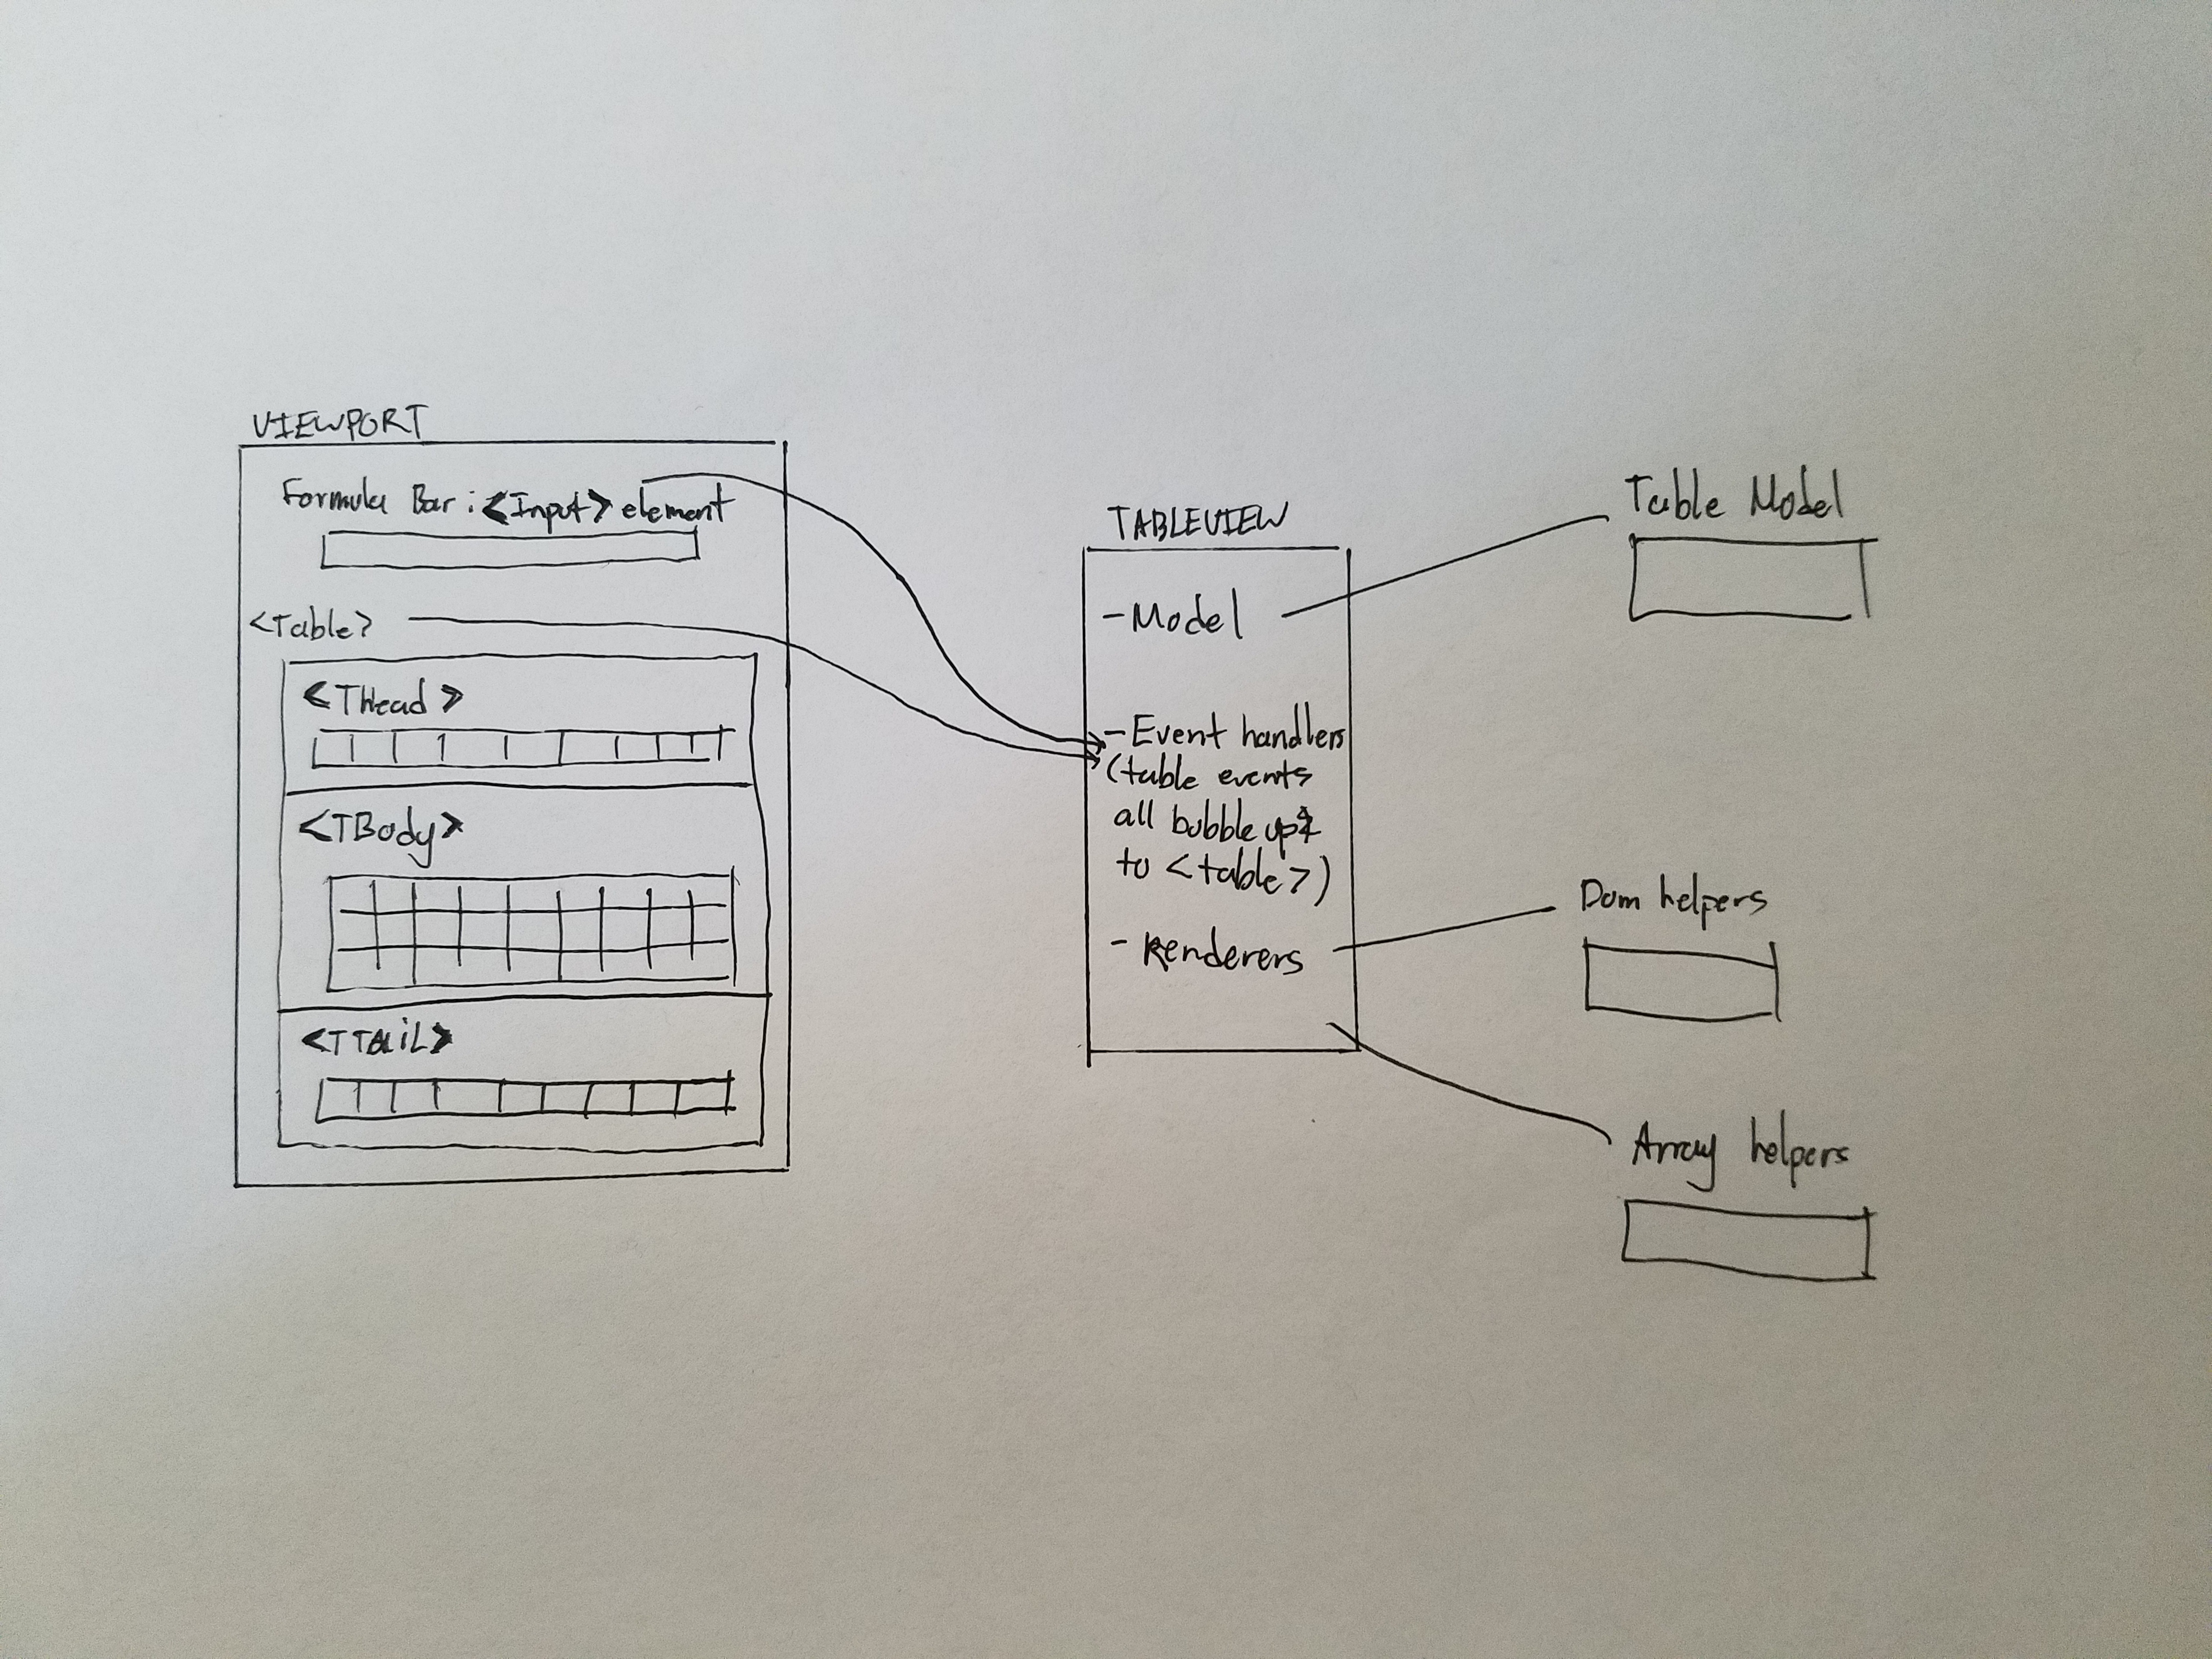 VIEWPORT
Formula Bar : <Input> element
<Table>
<THead>
<TBody>
<TTAiL>
TABLEVIEW
- Model
- Event handlers
(table events
all bubble up
to <table>)
- Renderers
Table Model
Dom helpers
Array helpers